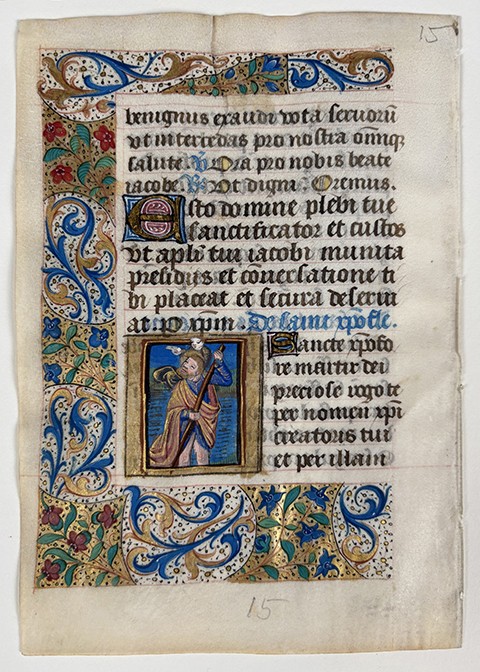 15
benignus exaudi vota servorū
vt intercedas pro nostra omniq̄
salute ℣ Ora pro nobis beate
iacobe ℟ Vt digni. Oremus.
Esto domine plebi tue
sanctificator et custos
vt apl̄i tui iacobi munita
presidiis et conversatione ti
bi placeat et secura deservi
at. P xp̄m. De saint xp̄ofle.
Sancte xp̄ofo
re martir dei
preciose rogo te
per nomen xp̄i
creatoris tui
et per illam
15